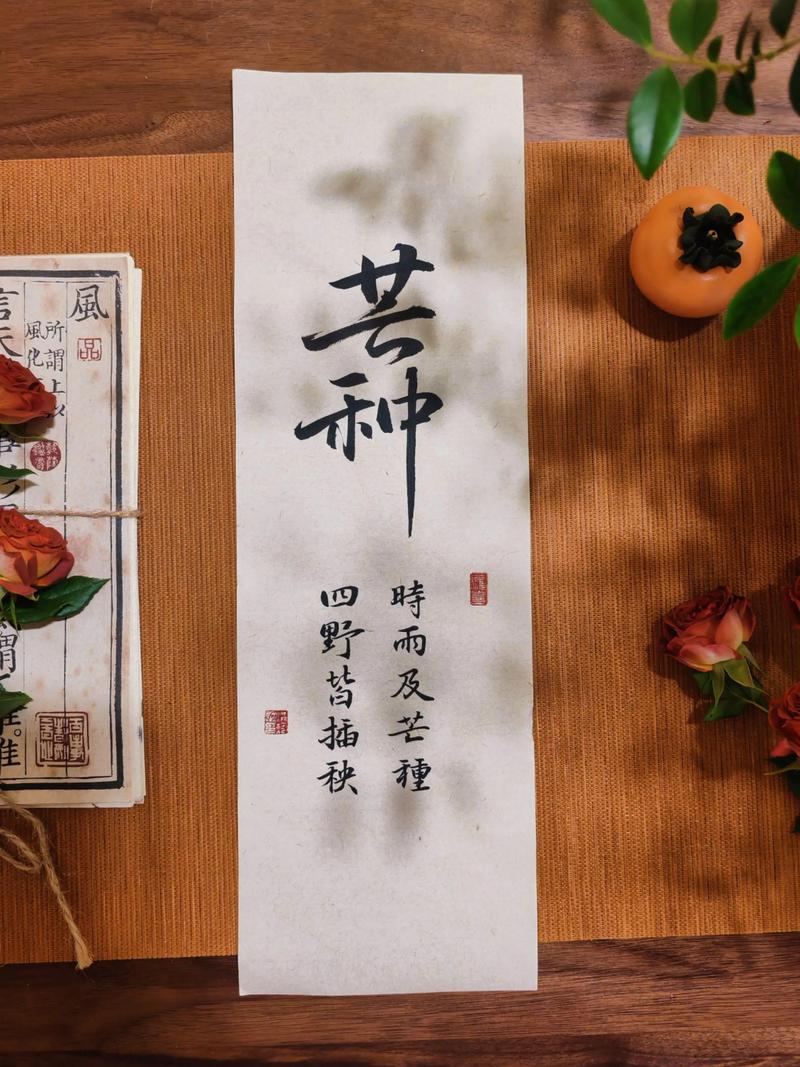 芒种
時雨及芒種
四野皆插秧
風
品
所謂上以
風化